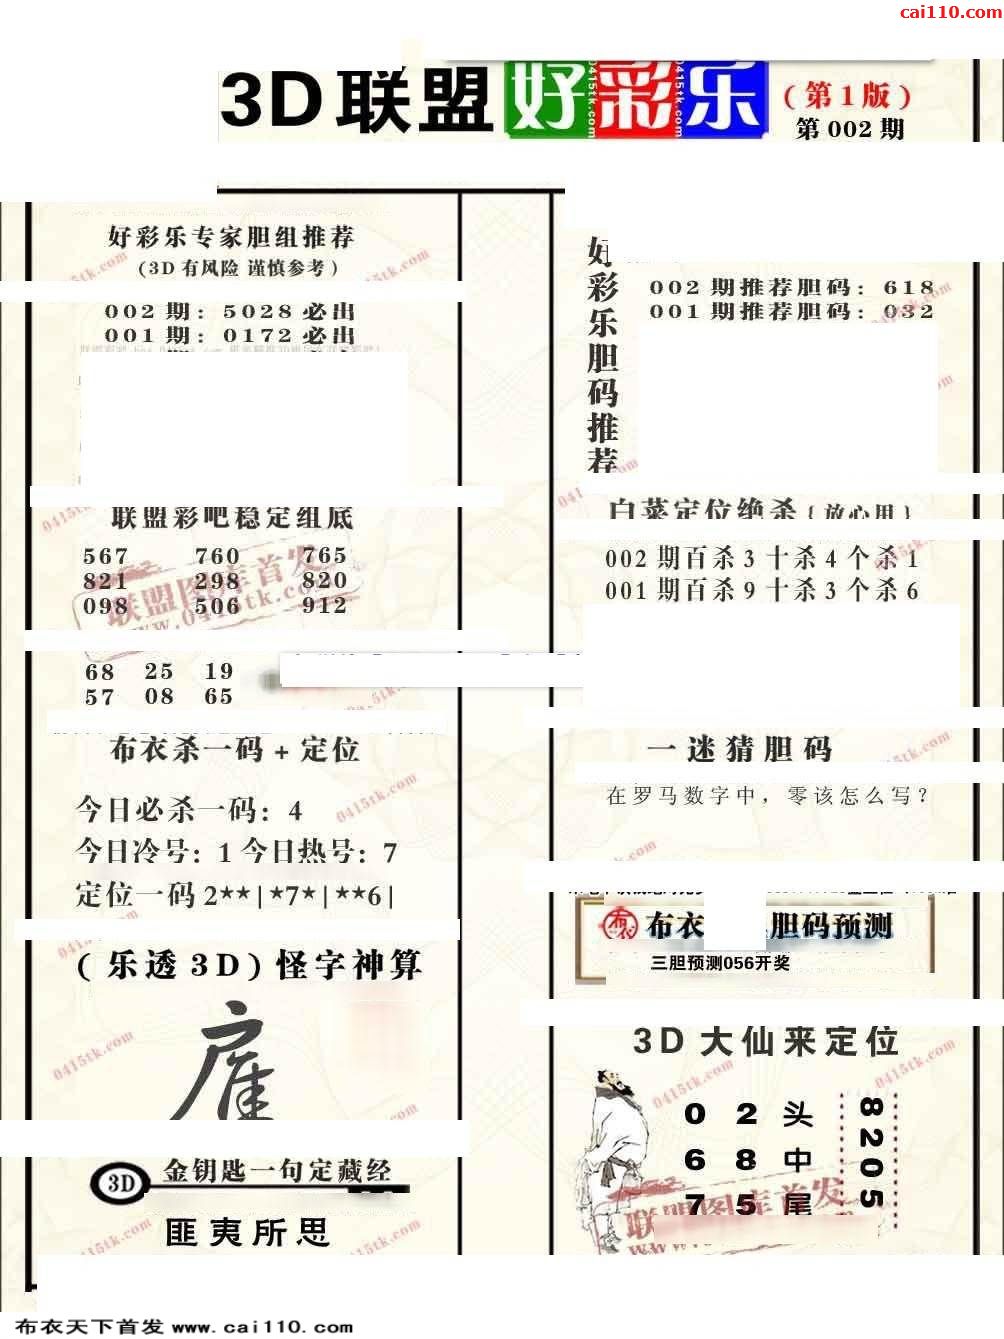 cai110.com
3D联盟 好彩乐 (第1版)
第 002 期
好彩乐专家胆组推荐
(3D有风险 谨慎参考)
002 期: 5028 必出
001 期: 0172 必出
联盟彩吧稳定组底
567 760 765
821 298 820
098 506 912
68 25 19
57 08 65
布衣杀一码+定位
今日必杀一码: 4
今日冷号: 1 今日热号: 7
定位一码 2**|*7*|**6|
(乐透3D)怪字神算
3D 金钥匙一句定藏经
匪夷所思
好彩乐胆码推荐
002 期推荐胆码: 618
001 期推荐胆码: 032
白菜定位绝杀{放心用}
002 期百杀 3 十杀 4 个杀 1
001 期百杀 9 十杀 3 个杀 6
一迷猜胆码
在罗马数字中，零该怎么写？
布衣 布衣 胆码预测
三胆预测056开奖
3D大仙来定位
0 2 头
6 8 中
7 5 尾
8205
联盟图库首发
www.0415tk.com
0415tk.com
布衣天下首发 www.cai110.com